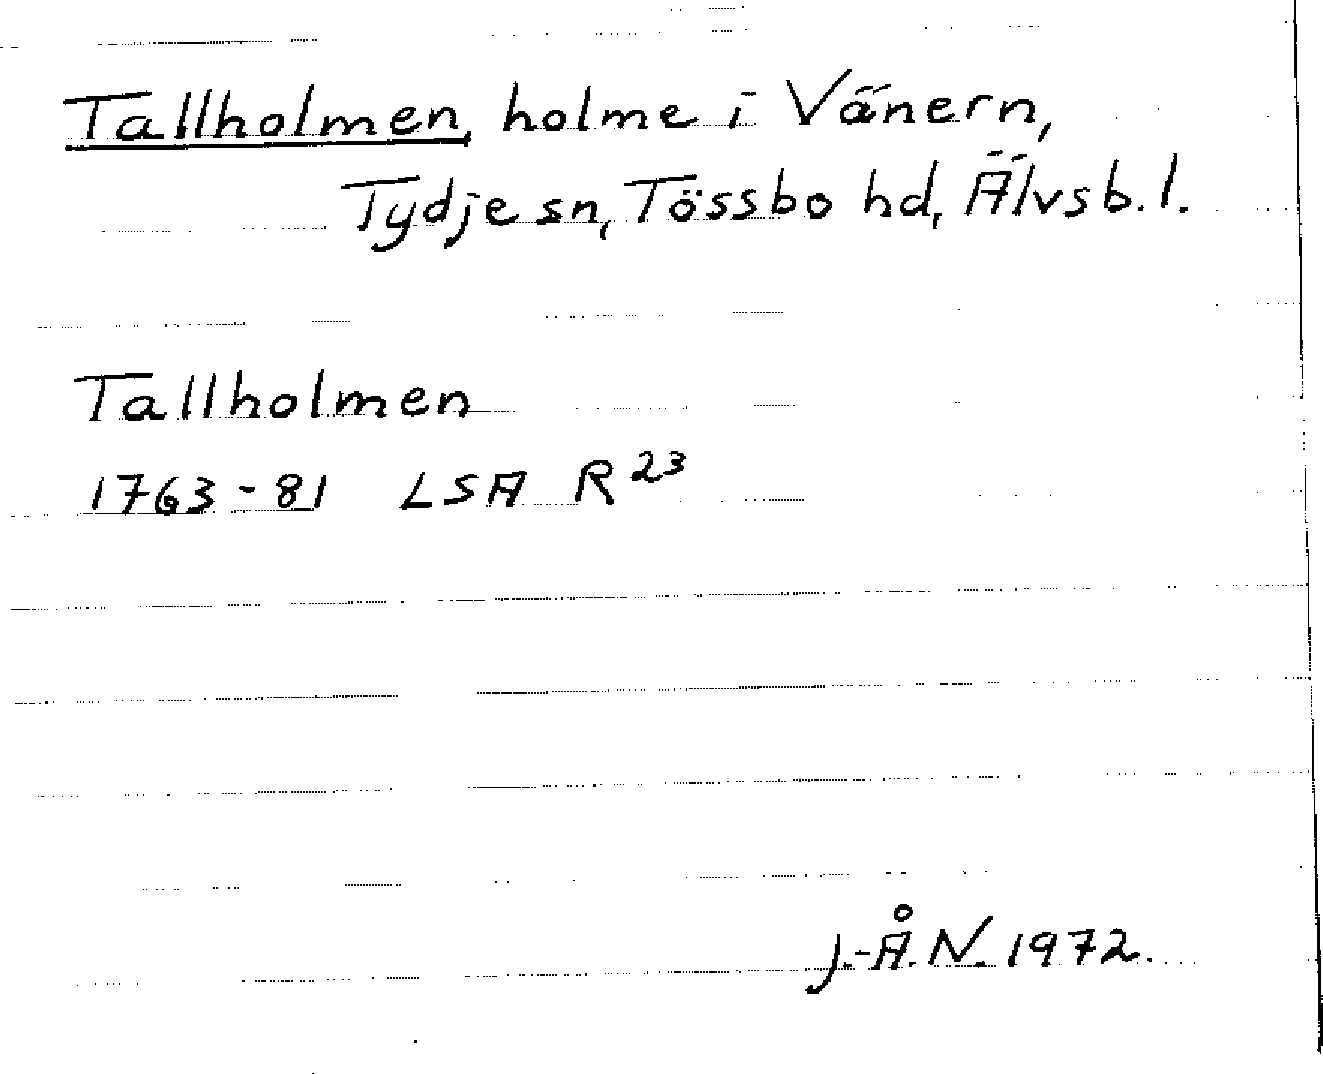 Tallholmen, holme i Vänern,
Tydje sn, Tössbo hd, Älvsb. l.
Tallholmen
1763-81 LSA R 23
J.-Å. N. 1972.